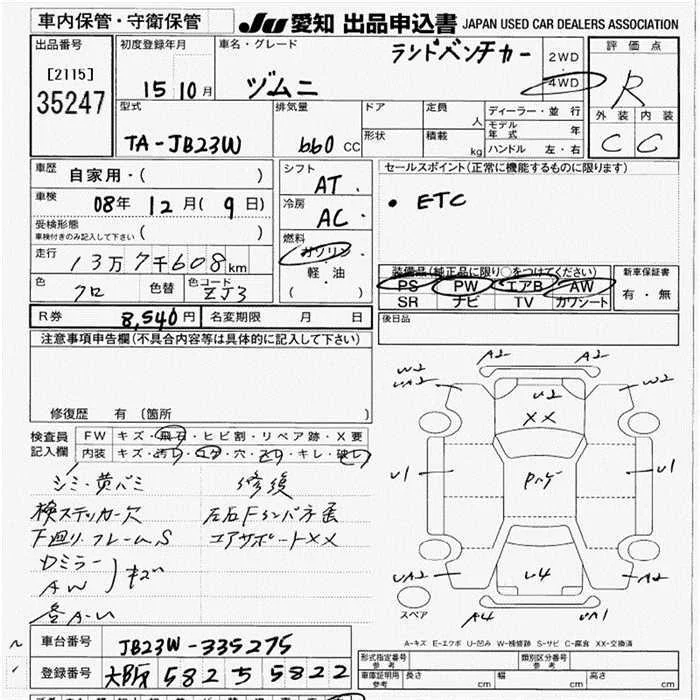 車内保管・守衛保管
JU 愛知 出品申込書 JAPAN USED CAR DEALERS ASSOCIATION
出品番号
[2115]
35247
初度登録年月
15 10月
車名・グレード
ランドベンチカー
ヅムニ
2WD
4WD
評価点
R
外装 内装
C C
型式
TA-JB23W
排気量
660 CC
ドア
形状
定員
人
積載
kg
ディーラー・並行
モデル年式 年
ハンドル 左・右
車歴
自家用・( )
車検
08年 12月(9日)
受検形態
車検付きのみ記入して下さい ( )
走行
13万7千608km
色
クロ
色替
色コード
ZJ3
シフト
AT
冷房
AC
燃料
ガソリン
軽・油
( )
セールスポイント(正常に機能するものに限ります)
• ETC
装備品(純正品に限り○をつけてください)
PS PW エアB AW
SR ナビ TV カワシート
新車保証書
有・無
R券 8,540円
名変期限 月 日
後日品
注意事項申告欄(不具合内容等は具体的に記入して下さい)
修復歴 有(箇所 )
検査員
記入欄
FW キズ・飛石・ヒビ割・リペア跡・X要
内装 キズ・汚れ・コゲ・穴・スリ・キレ・破れ
シミ・黄バミ
検ステッカー欠
下廻り.フレームS
Dミラー
AW
キズ
修復
エアサポートXX
A2 A2
W2
UA2
W2
U2
XX
U1
U1
UA2
U4
A2
A4
UA1
スペア
A-キズ E-エクボ U-凹み W-補修跡 S-サビ C-腐食 XX-交換済
車台番号
JB23W-335275
登録番号
大阪 582 ち 5822
形式指定番号
参考
類別区分番号
参考
車庫証明用
参考
長さ cm
幅 cm
高さ cm